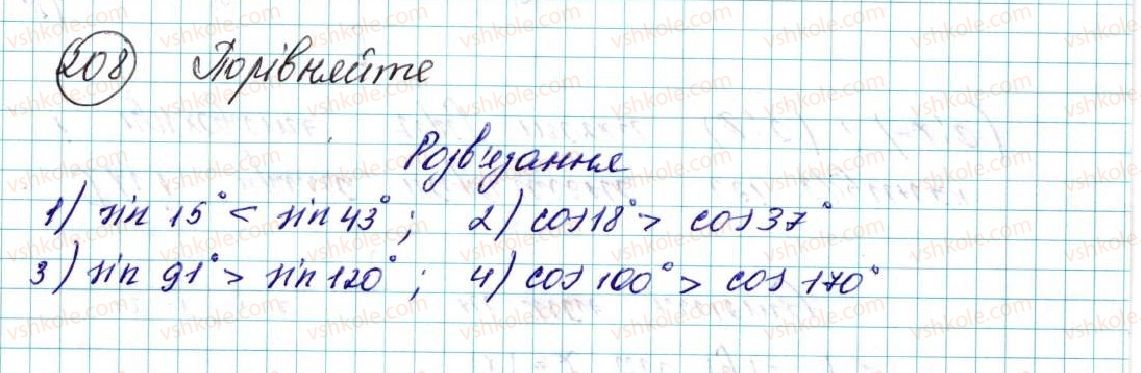 208 Порівняйте
Розв'язання
1) sin 15° < sin 43° ; 2) cos 18° > cos 37°
3) sin 91° > sin 120° ; 4) cos 100° > cos 170°